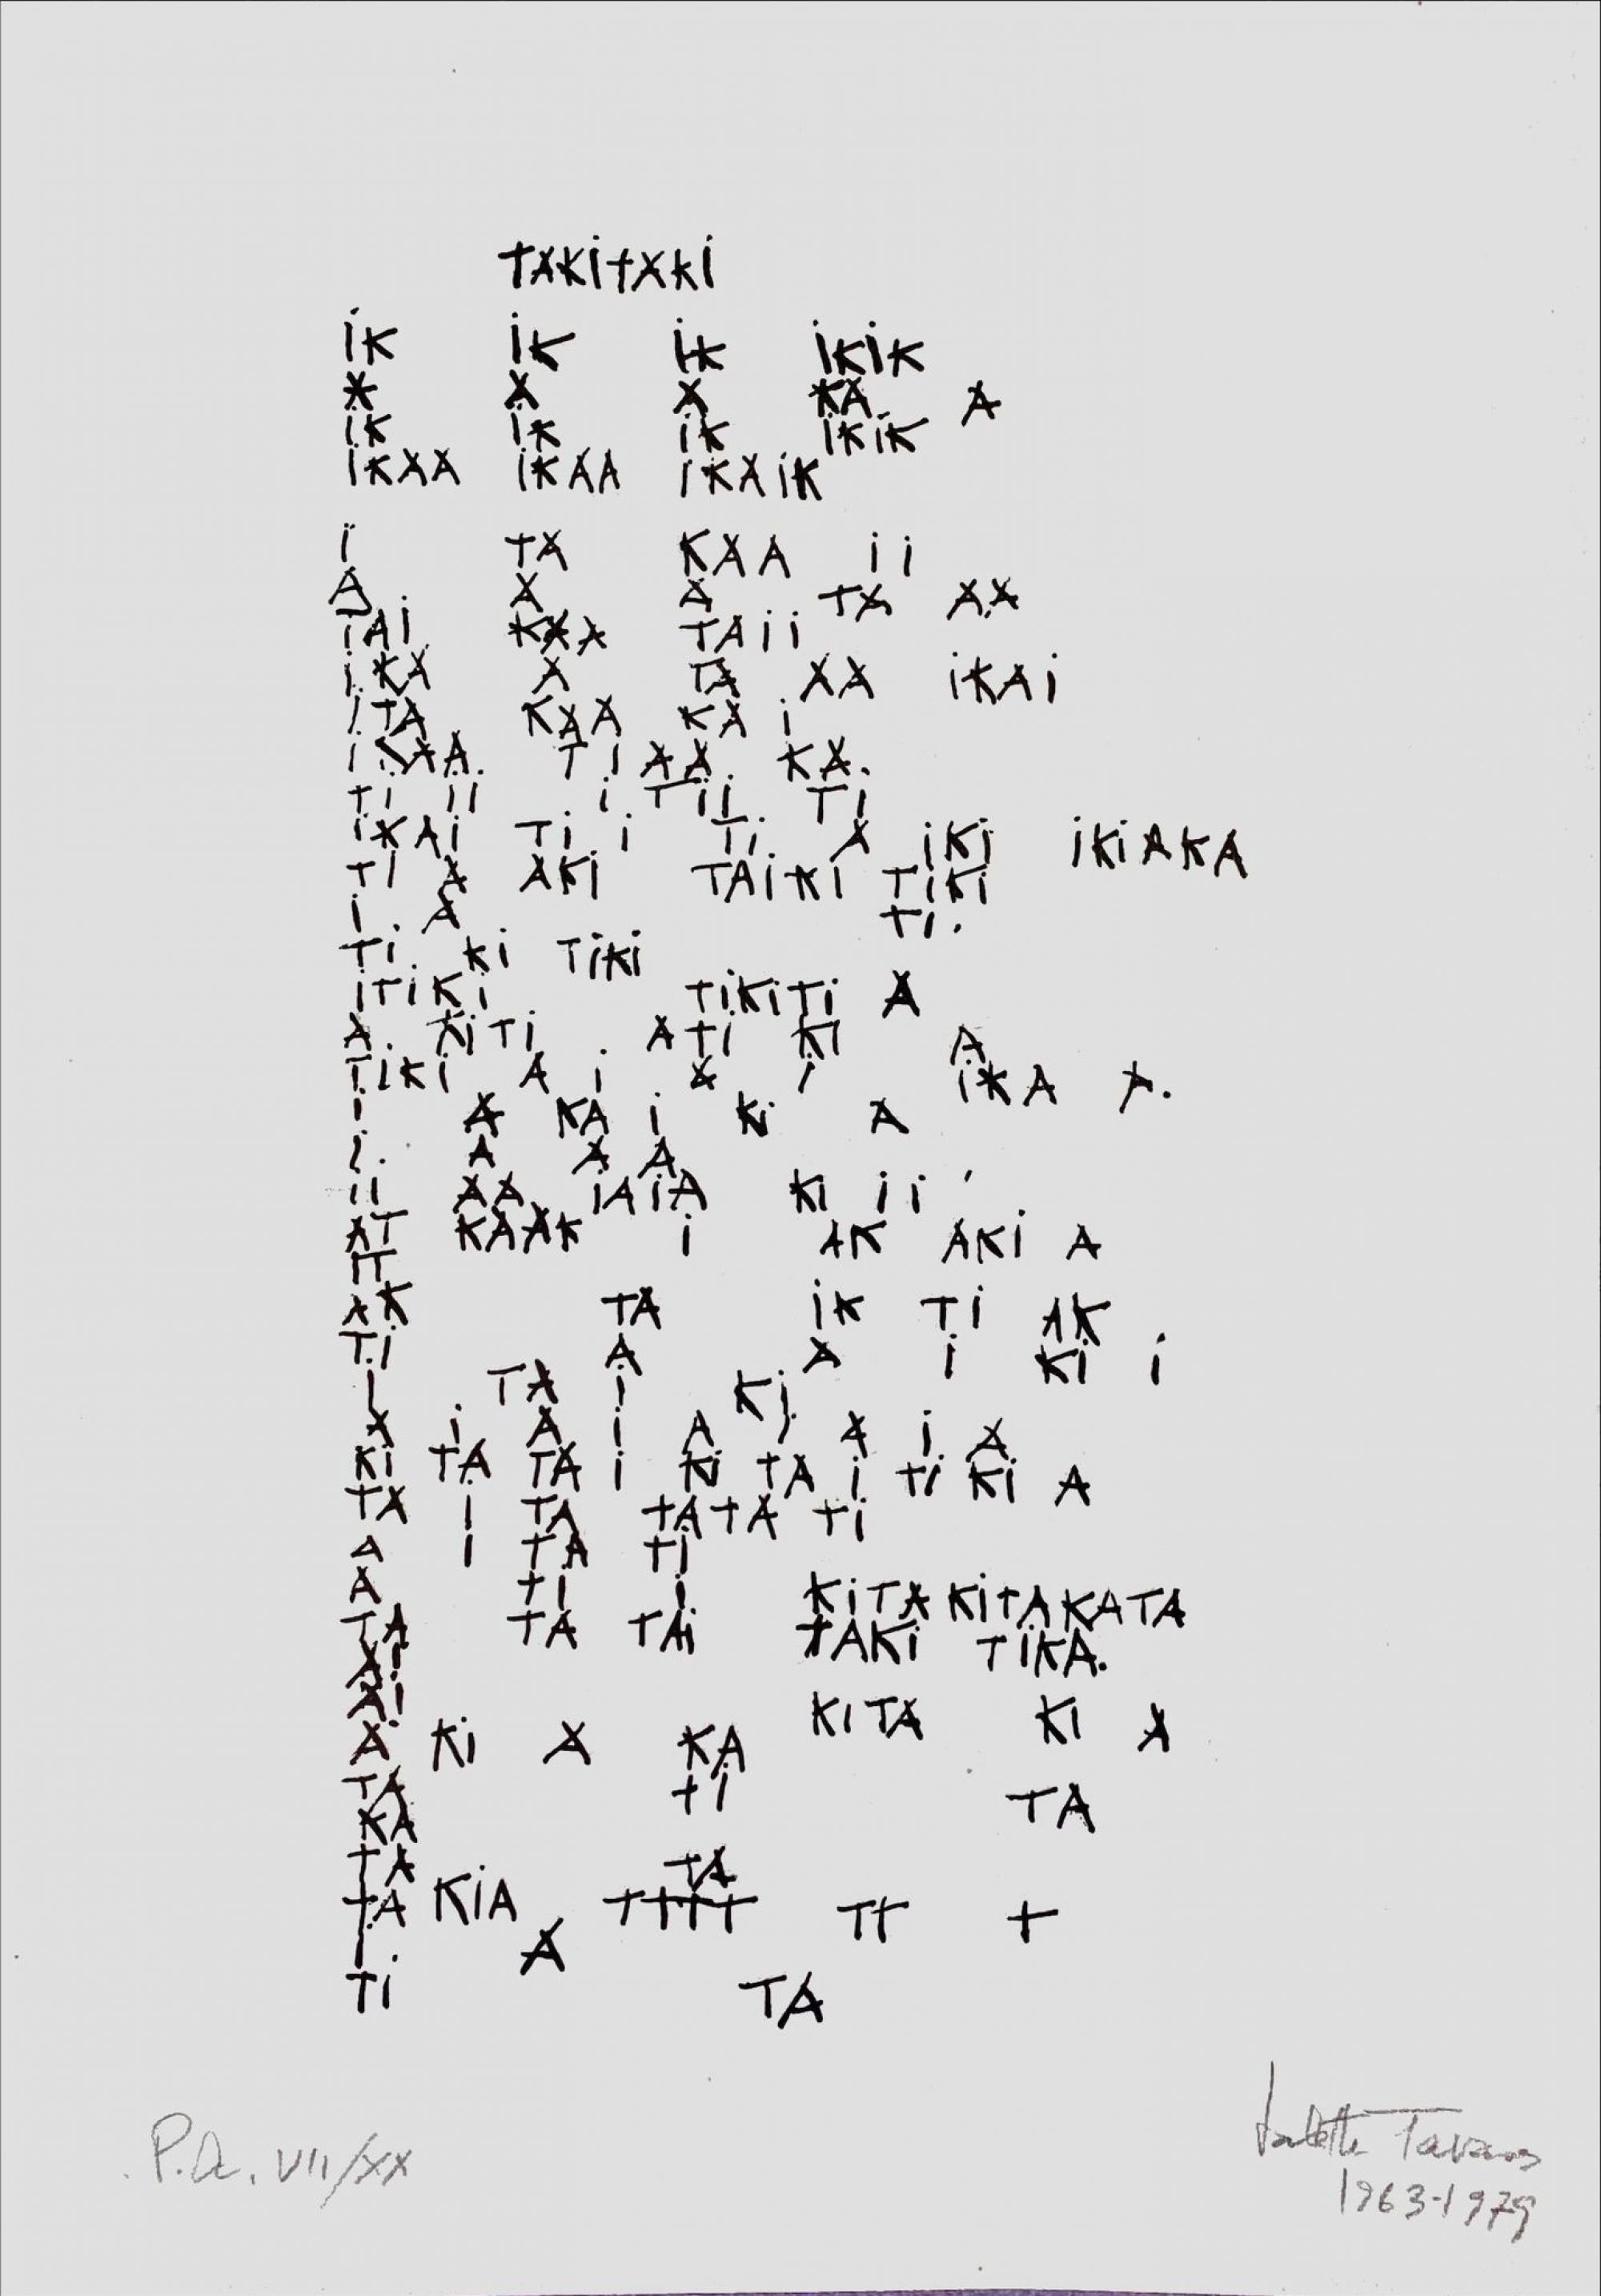 TAKITAKI
IK IK IK IKIK
A A A KA A
IK IK IK IKIK
IKAA IKAA IKAIK
I TA KAA II
A A A TA AA
IAI KAA TAII
IKA A TA AA IKAI
ITA KAA KA I
IKAA. TI AA KA.
TI II I TII TI
IKAI TI I TI A IKI IKIAKA
TI A AKI TAIKI TIKI
I A TI.
TI KI TIKI
ITIKI TIKITI A
A KITI ATI KI A
TIKI A I A I IKA A.
I A KA I KI A
I A A A
II AA IAIA KI II
AT KAAK I AK AKI A
IT
AK TA IK TI AK
TI A A I KI I
I TA I KI
A I A I A I A I A
KI TA TA I KI TA I TI KI A
TA I TA TATA TI
A I TA TI
A TI I KITAKITAKATA
TA TA TAI TAKI TIKA.
AI
AI KITA KI A
A KI A KA
TA TI TA
KA
TA TA
TA KIA TTTT TT T
I A
TI TA
P.A. VII/XX
Salette Tavares
1963-1979